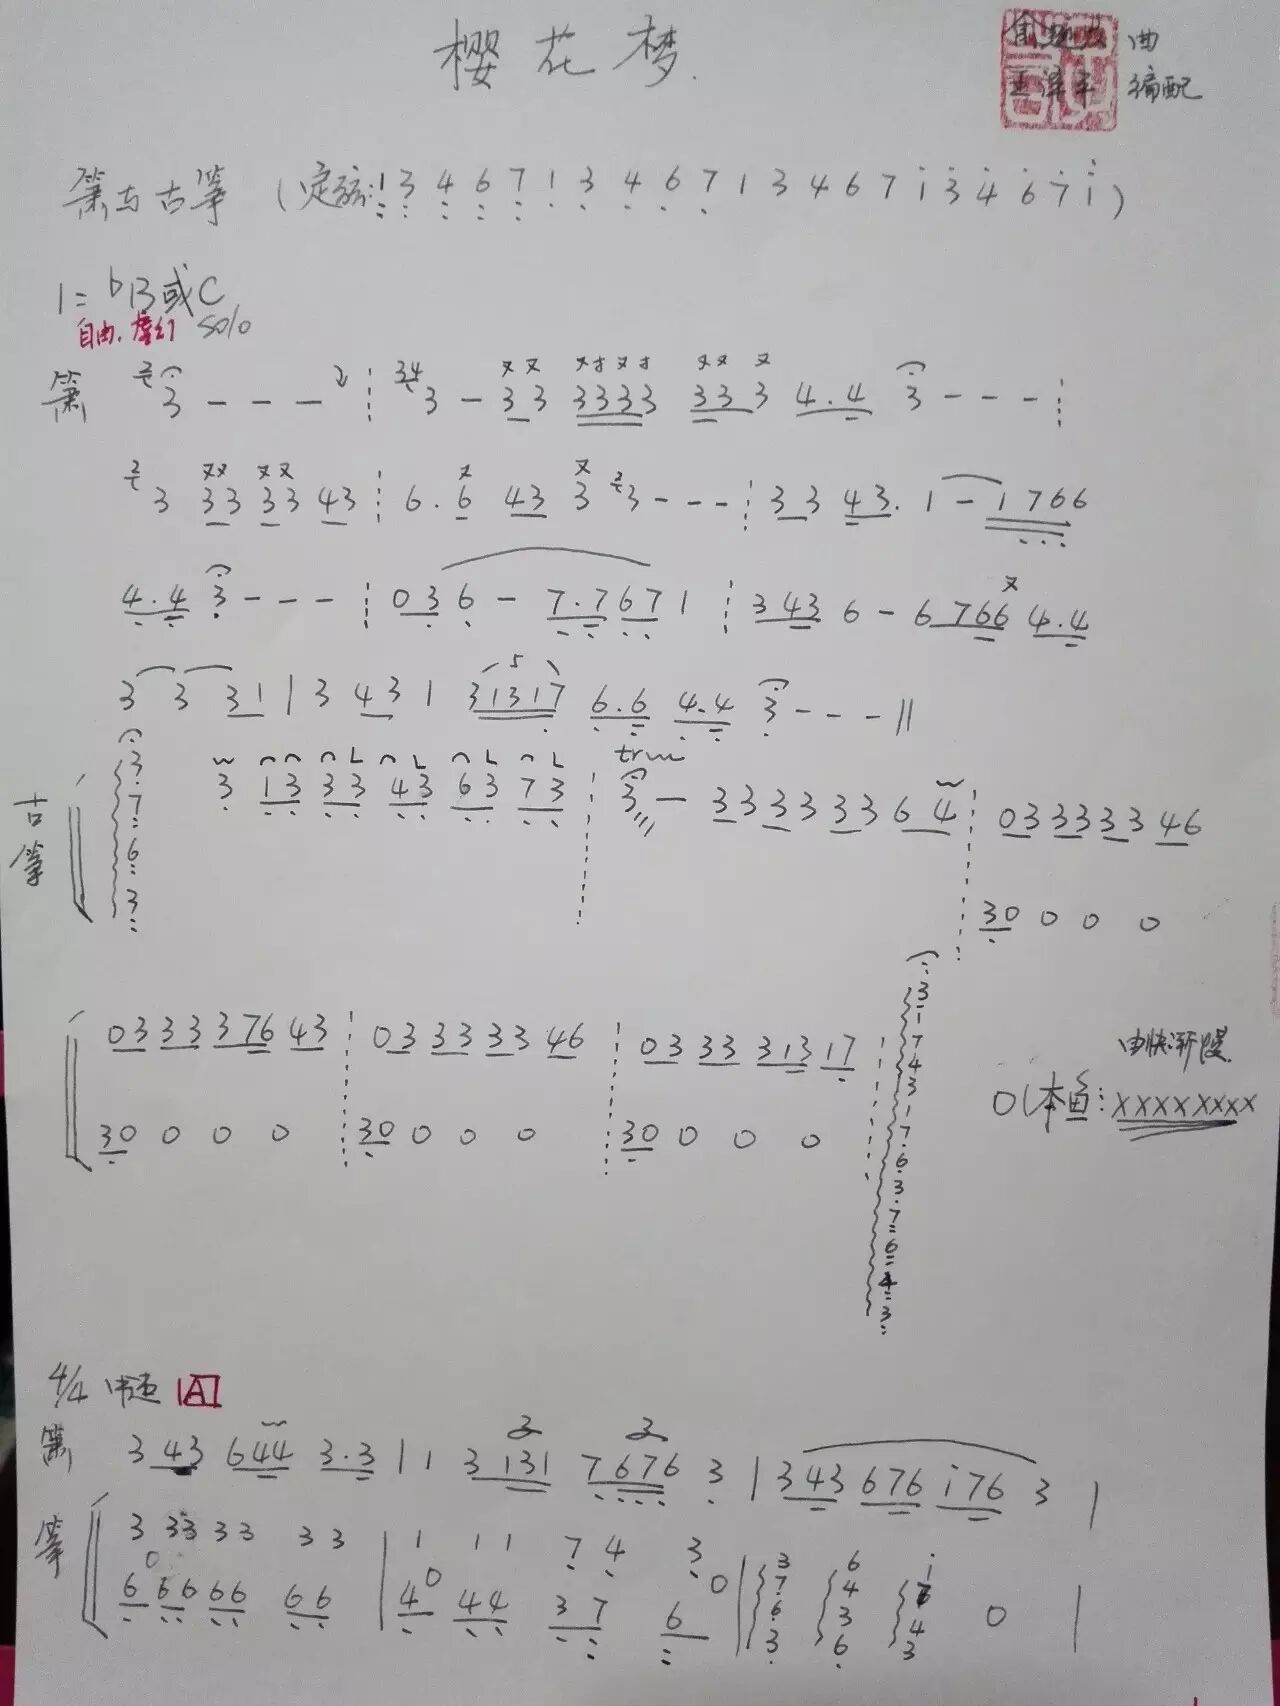 樱花梦
曲
编配
箫与古筝 (定弦: 1 3 4 6 7 1 3 4 6 7 1 3 4 6 7 i 3 4 6 7 i)
1=bB或C
自由. 虚幻 solo
箫 3 - - - 34 3 - 3 3 3333 33 3 4.4 3 - - -
3 33 33 43 6.6 43 3 3 - - - 33 43. 1 - 1766
4.4 3 - - - 036 - 7.7 67 1 343 6 - 6 766 4.4
3 3 31 | 3 43 1 31317 6.6 4.4 3 - - - ||
古筝 3 7 6 3 3 13 33 43 63 73 3 - 33 33 33 64 03 33 33 46
30 0 0 0
03 33 376 43 03 33 33 46 03 33 313 17 3 1 7 4 3 1 7 6 3 7 6 4 3 由快渐慢
30 0 0 0 30 0 0 0 30 0 0 0 0(本鱼: XXXXXXXX
4/4 中速 A
箫 3 43 644 3.3 | 1 3 131 7676 3 | 343 676 i76 3 |
筝 3 33 33 33 | 1 11 74 3 | 3 7 6 3 6 4 3 6 i 7 4 3 0 |
0 6 66 66 66 | 4 0 44 37 6 0